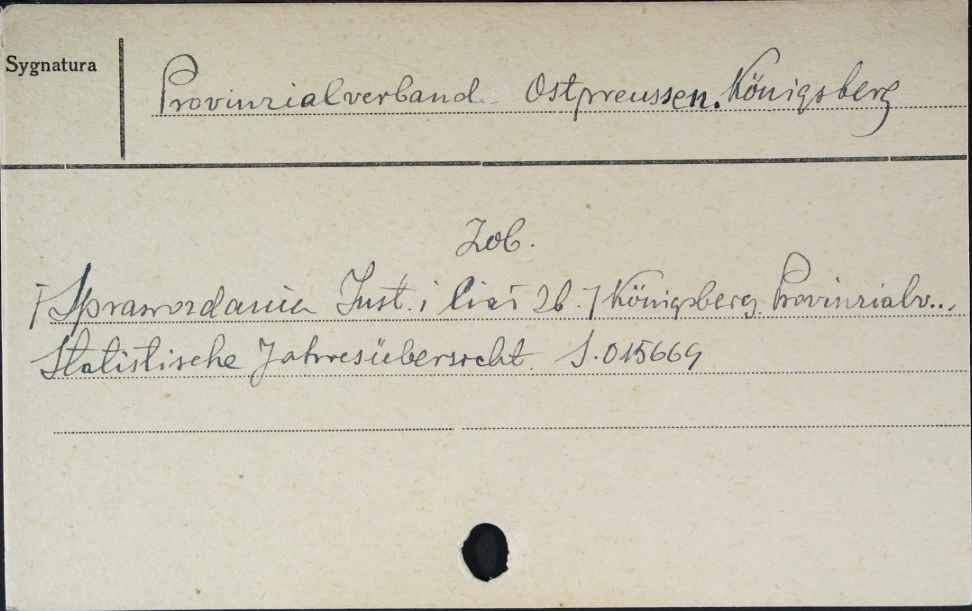 Sygnatura
Provinzialverband Ostpreussen. Königsberg
Zob.
[Sprawozdania Inst. i 26.] Königsberg. Provinzialv..,
Statistische Jahresübersicht. S.015669